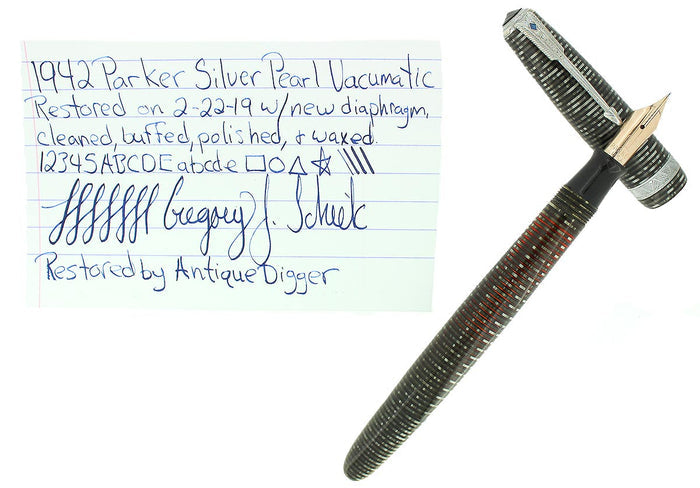 1942 Parker Silver Pearl Vacumatic
Restored on 2-22-19 w/ new diaphragm,
cleaned, buffed, polished, & waxed.
12345 ABCDE abcde
Gregory J.
Restored by Antique Digger